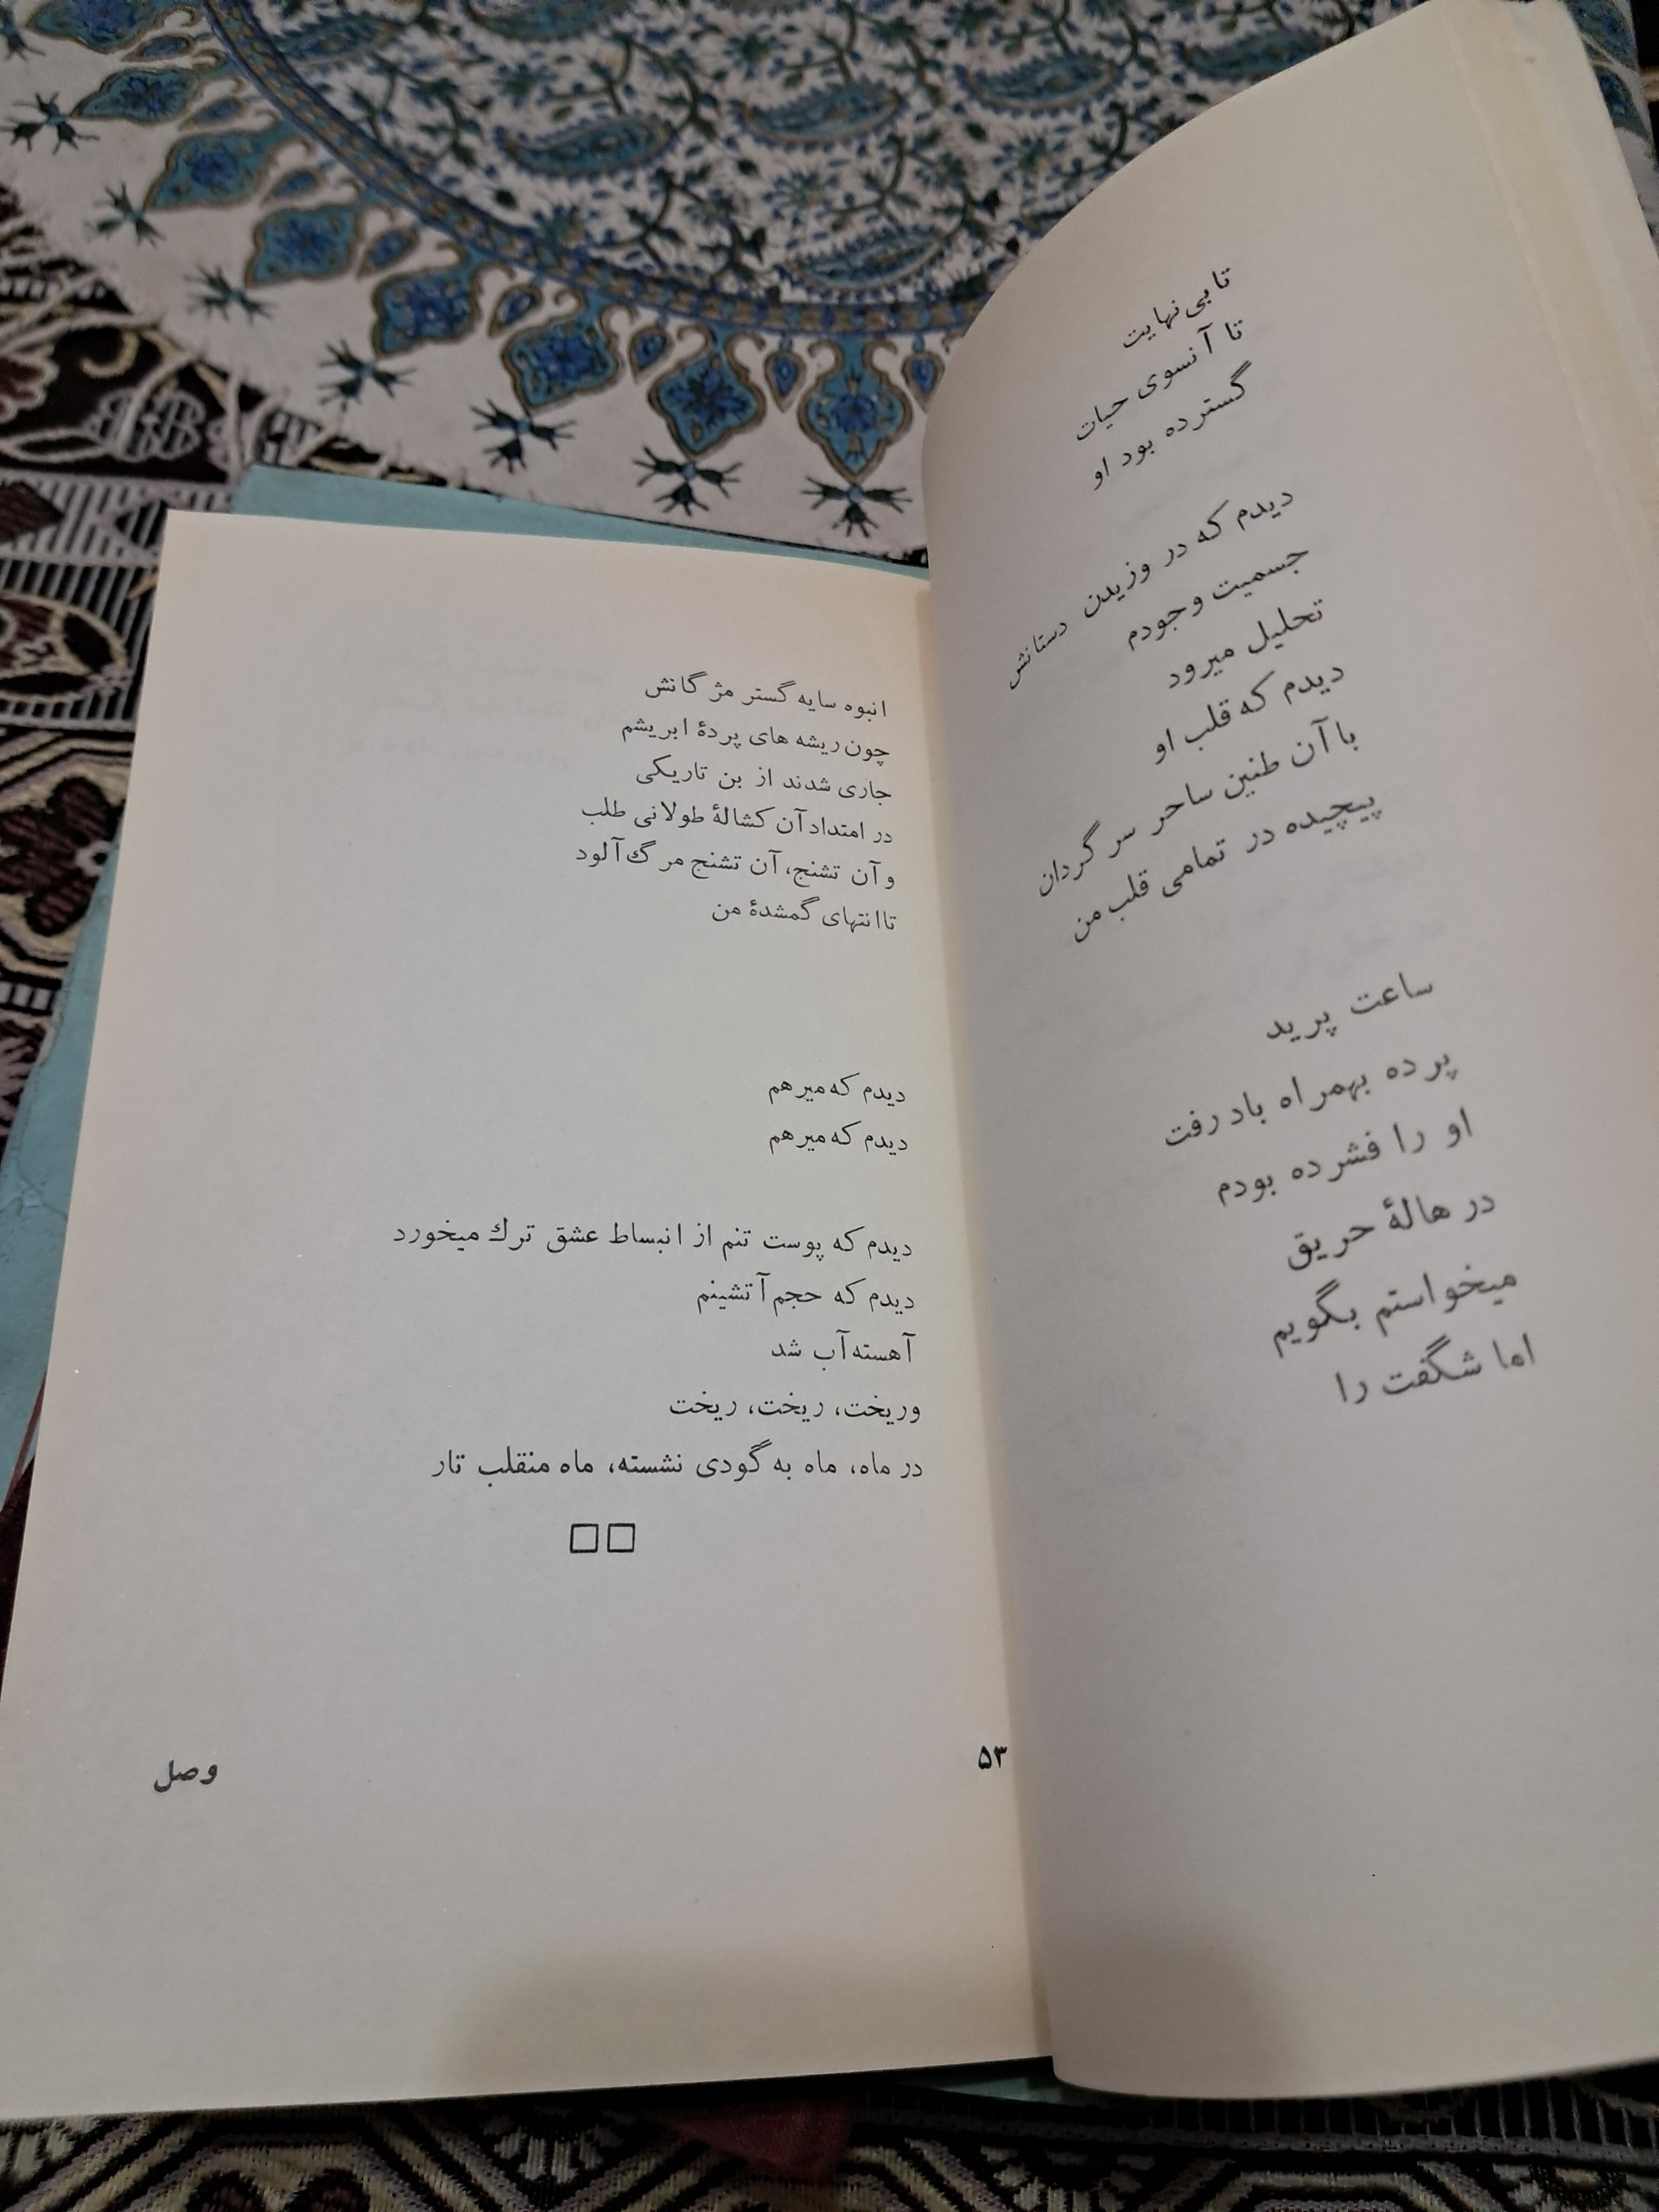 تا بی نهایت
تا آنسوی حیات
گسترده بود او
دیدم که در وزیدن دستانش
جسمیت وجودم
تحلیل میرود
دیدم که قلب او
با آن طنین ساحر سرگردان
پیچیده در تمامی قلب من
ساعت پرید
پرده بهمراه باد رفت
او را فشرده بودم
در هالهٔ حریق
میخواستم بگویم
اما شگفت را
انبوه سایه گستر مژگانش
چون ریشه های پردهٔ ابریشم
جاری شدند از بن تاریکی
در امتداد آن کشالهٔ طولانی طلب
و آن تشنج، آن تشنج مرگ آلود
تا انتهای گمشدهٔ من
دیدم که میرهم
دیدم که میرهم
دیدم که پوست تنم از انبساط عشق ترك میخورد
دیدم که حجم آتشینم
آهسته آب شد
وریخت، ریخت، ریخت
در ماه، ماه به گودی نشسته، ماه منقلب تار
۵۳
وصل